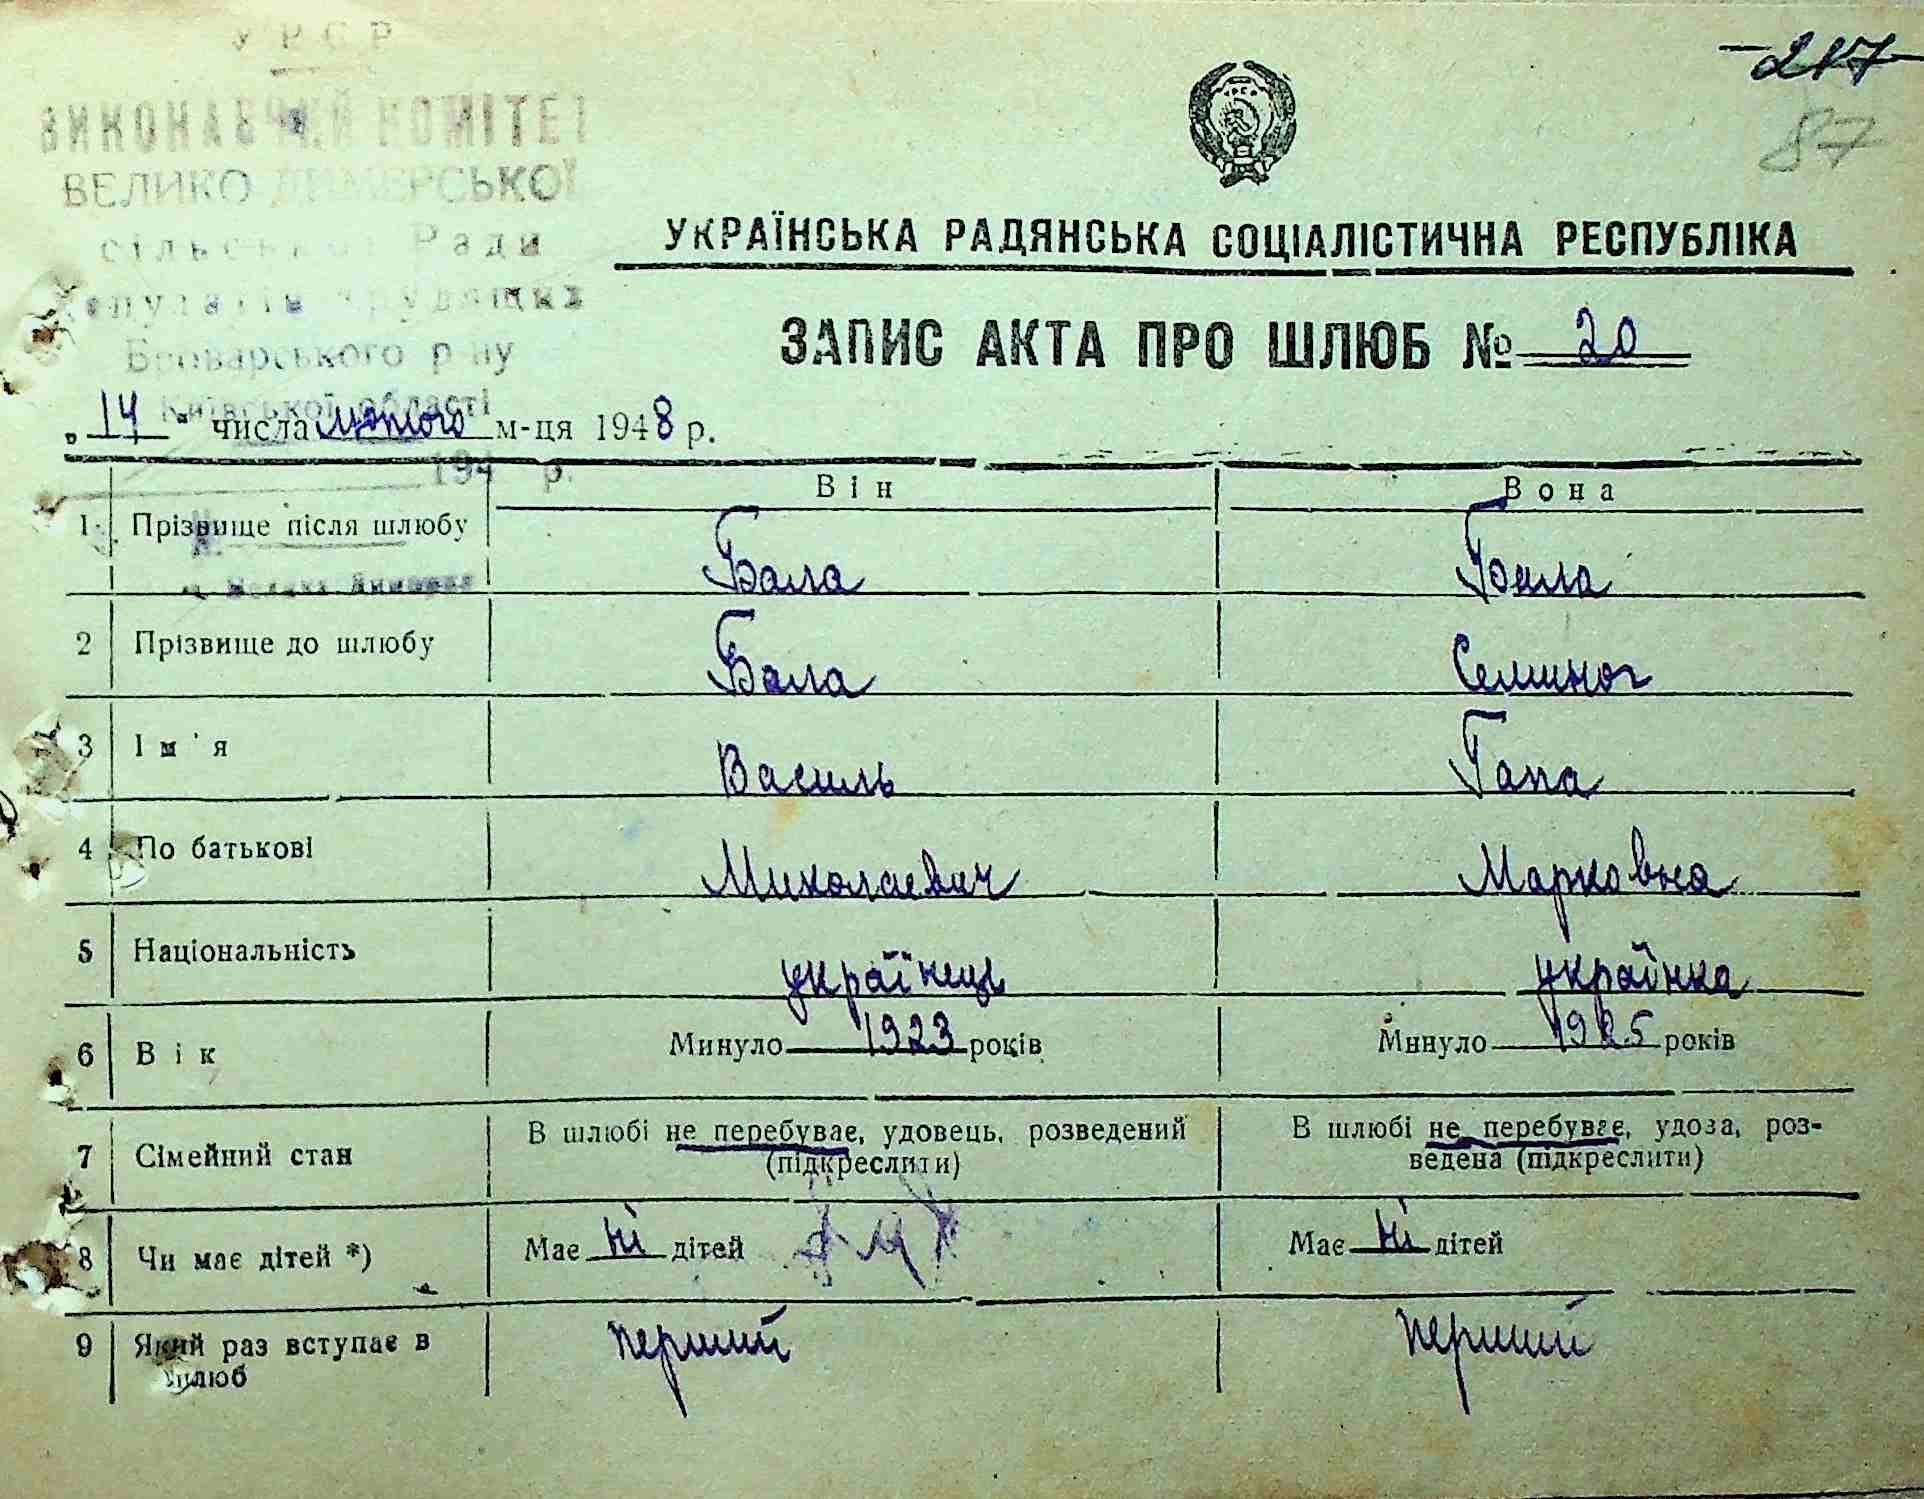 УРСР
ВИКОНАВЧИЙ КОМІТЕТ
ВЕЛИКО ДИМЕРСЬКОЇ
сільської Ради
депутатів трудящих
Броварського р-ну
Київської області
194 р.
№
с. Велика Димерка
217
87
УКРАЇНСЬКА РАДЯНСЬКА СОЦІАЛІСТИЧНА РЕСПУБЛІКА
ЗАПИС АКТА ПРО ШЛЮБ № 20
„ 14 “ числа лютого м-ця 1948 р.
Він Вона
1 Прізвище після шлюбу Бала Бала
2 Прізвище до шлюбу Бала Семиног
3 Ім'я Василь Гапа
4 По батькові Миколаевич Марковна
5 Національність українець українка
6 Вік Минуло 1923 років Минуло 1925 років
7 Сімейний стан В шлюбі не перебуває, удовець, розведений (підкреслити) В шлюбі не перебуває, удова, роз-
ведена (підкреслити)
8 Чи має дітей *) Має ні дітей Має ні дітей
9 Який раз вступає в шлюб перший перший